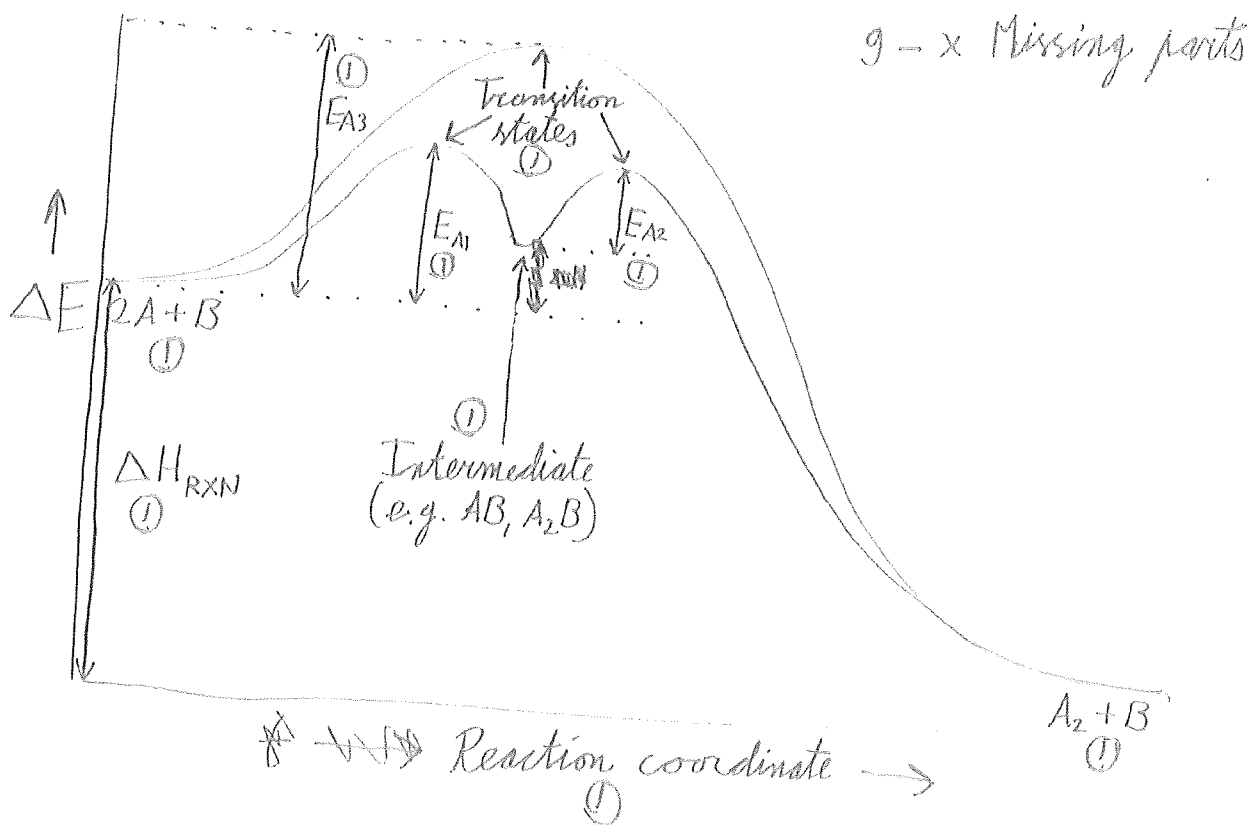 9 - x Missing parts
①
E_A3
Transition
states
①
E_A1
①
E_A2
①
ΔE
2A + B
①
ΔH_RXN
①
①
Intermediate
(e.g. AB, A₂B)
A₂ + B
①
Reaction coordinate →
①